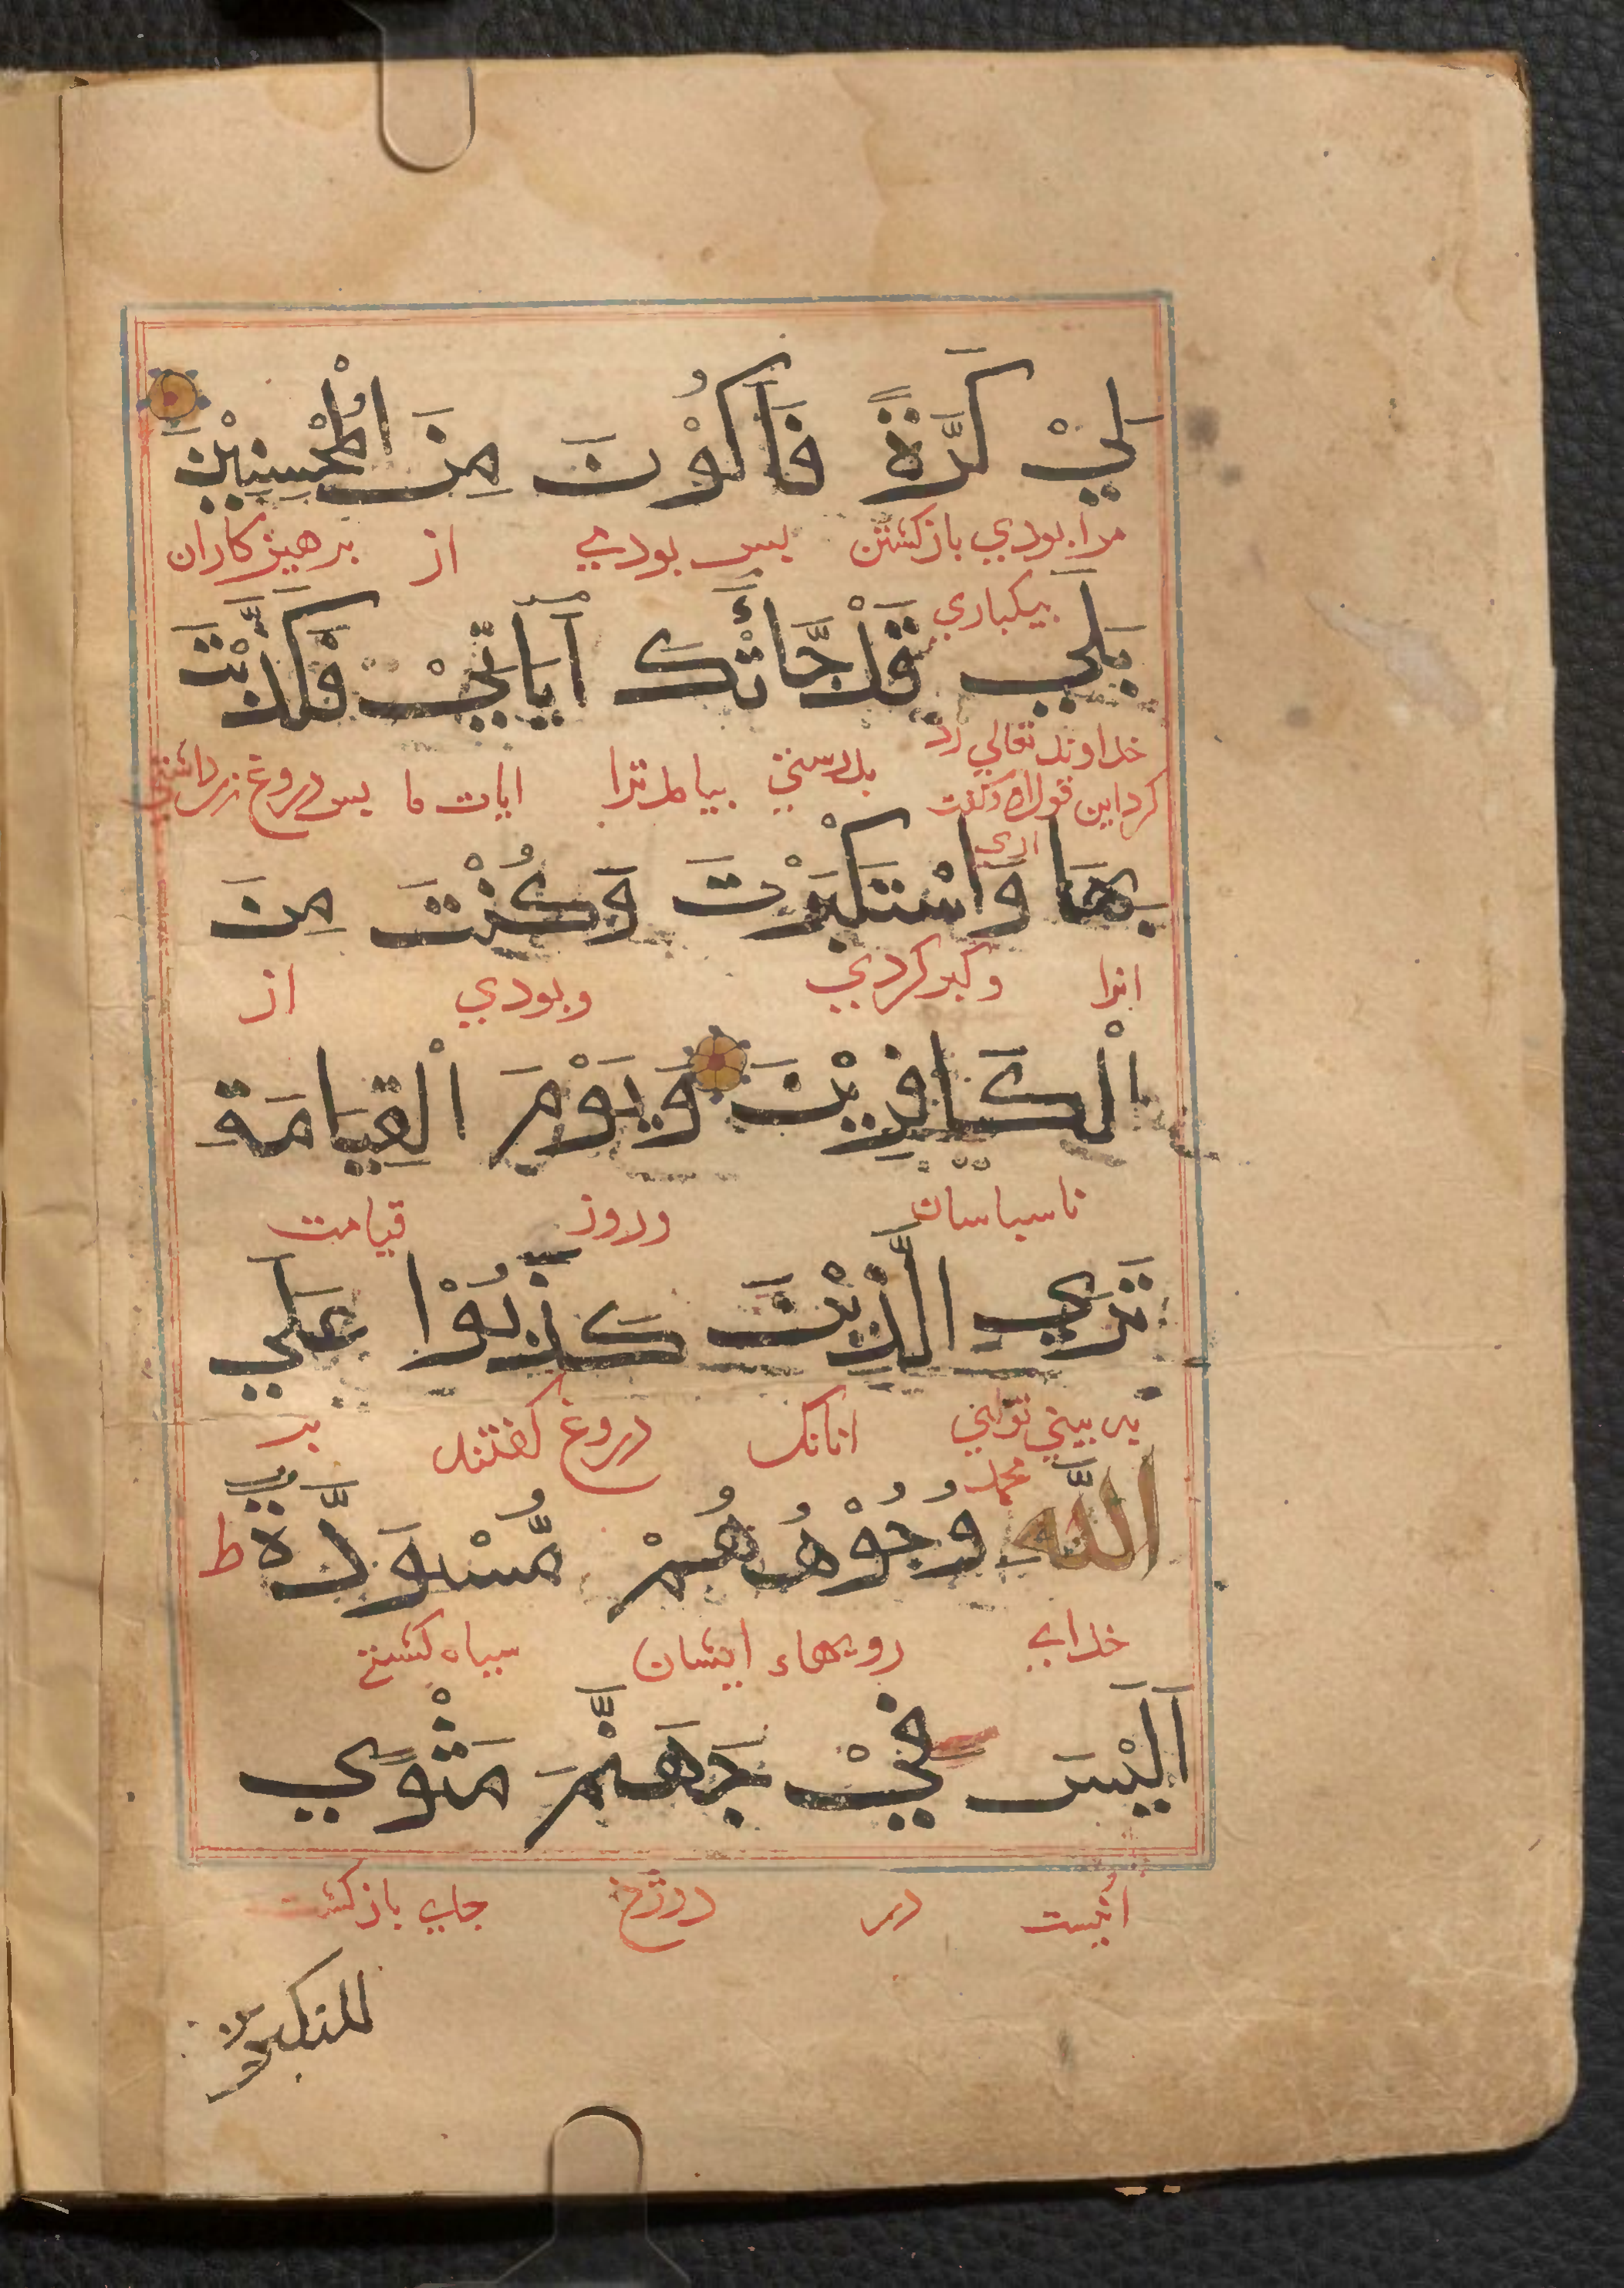 لِيْ كَرَّةً فَاَكُوْنَ مِنَ الْمُحْسِنِيْنَ
مرا بودي بازكشتن پس بودمي از پرهيزكاران
بيكباري
بَلَي قَدْ جَّاءَتْكَ اٰيَاتِيْ فَكَذَّبْتَ
خداوند تعالي رد
كرد اين قول او كفت بدرستي بيامد ترا ايات ما پس دروغ زن داشتي
اري
بِهَا وَاسْتَكْبَرْتَ وَكُنْتَ مِنَ
انرا وكبر كردي وبودي از
الْكَافِرِيْنَ وَيَوْمَ الْقِيَامَةِ
ناسپاسان وروز قيامت
تَرَي الَّذِيْنَ كَذَبُوْا عَلَي
به بيني تواي انانك دروغ كفتند بر
محمد
اللَّهِ وُجُوْهُهُمْ مُّسْوَدَّةٌ ط
خداي رويهاء ايشان سياه كشته
اَلَيْسَ فِيْ جَهَنَّمَ مَثْوًي
انيست در دوزخ جاي بازكشت
للمتكبرين